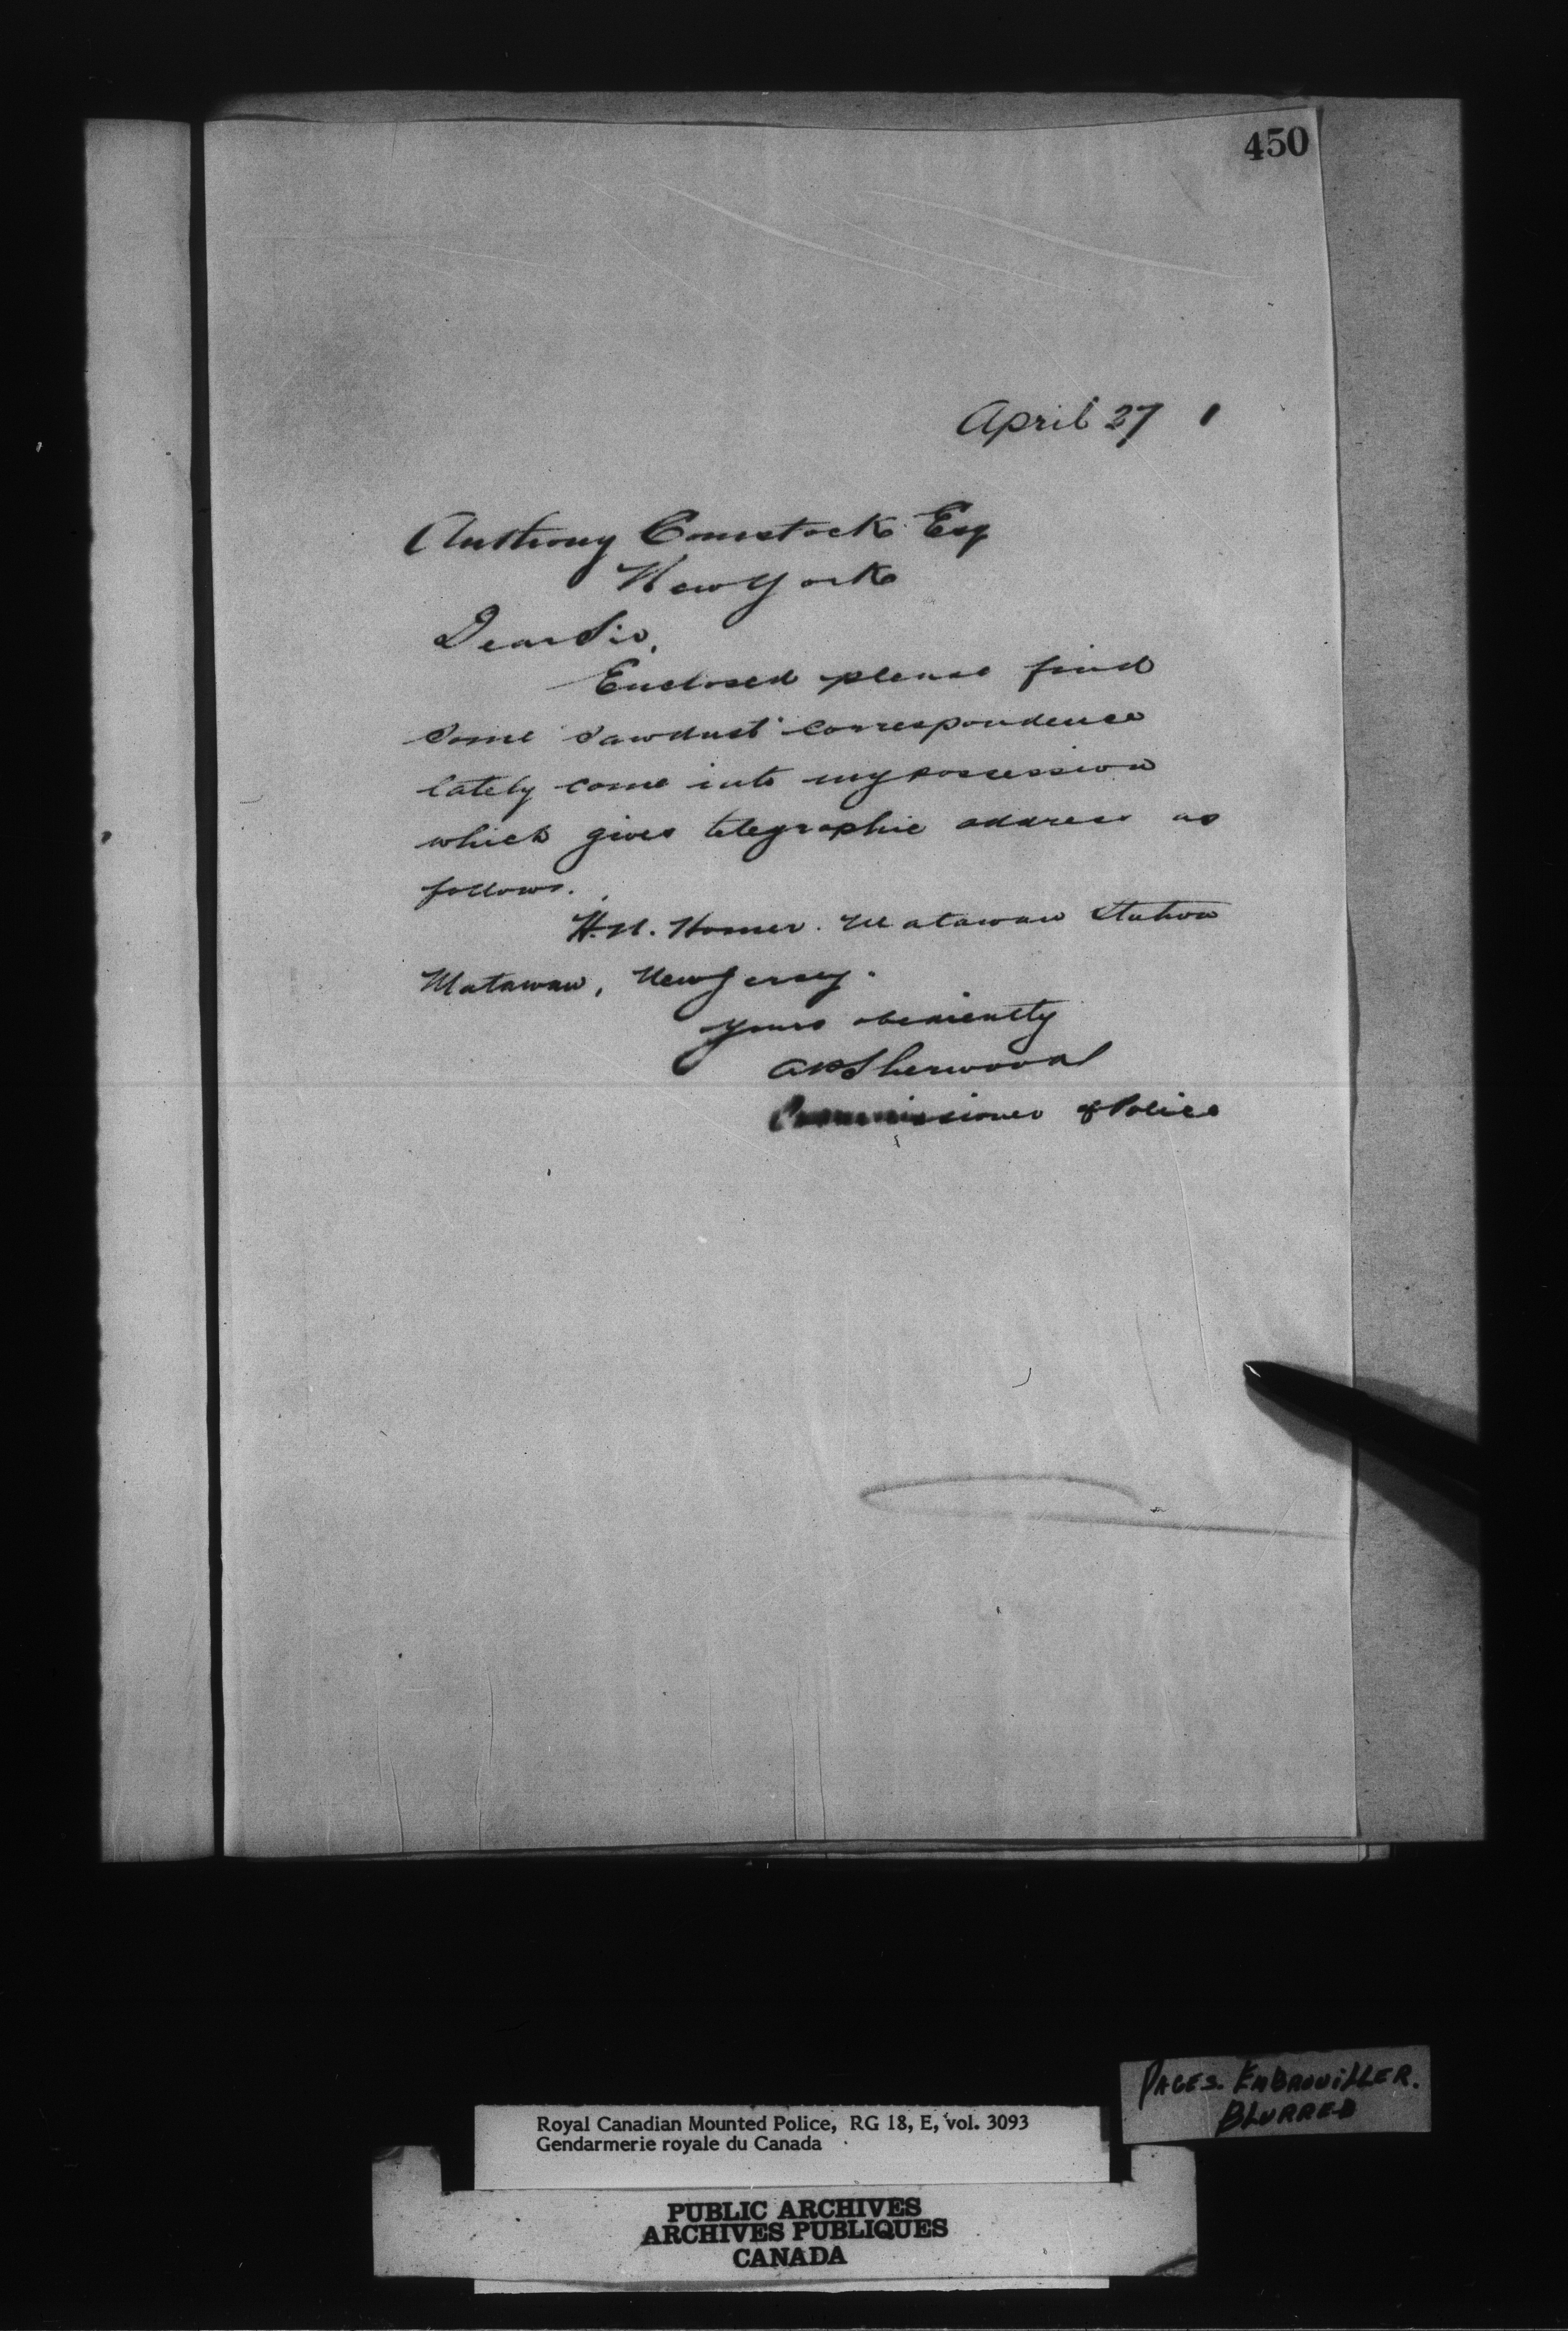 450
April 27 1
Anthony Comstock Esq
New York
Dear Sir,
Enclosed please find
some sawdust correspondence
lately come into my possession
which gives telegraphic address as
follows.
H.N. Homer. Matawan Station
Matawan, New Jersey.
Yours obediently
APSherwood
Commissioner of Police
PAGES. EMBROUILLER.
BLURRED
Royal Canadian Mounted Police, RG 18, E, vol. 3093
Gendarmerie royale du Canada
PUBLIC ARCHIVES
ARCHIVES PUBLIQUES
CANADA